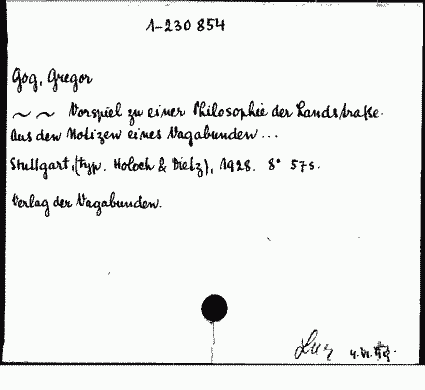 1-230 854
Gog, Gregor
~ ~ Vorspiel zu einer Philosophie der Landstraße.
Aus den Notizen eines Vagabunden...
Stuttgart, (typ. Holoch & Dietz), 1928. 8° 57s.
Verlag der Vagabunden.